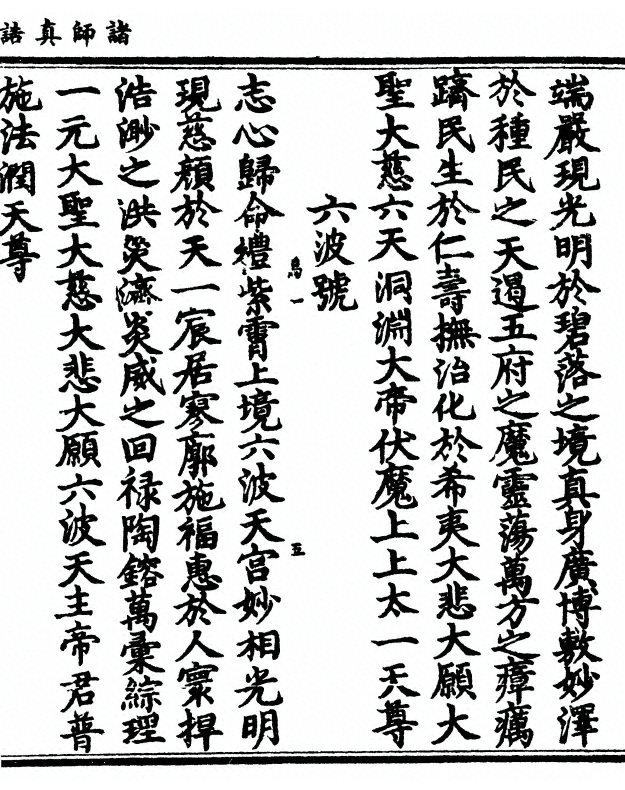 諸師真誥
端嚴現光明於碧落之境真身廣博敷妙澤
於種民之天遏五府之魔靈蕩萬方之瘴癘
躋民生於仁壽撫治化於希夷大悲大願大
聖大慈六天洞淵大帝伏魔上上太一天尊
六波號
鳥一
五
志心歸命禮紫霄上境六波天宮妙相光明
現慈顏於天一宸居寥廓施福惠於人寰捍
浩渺之洪災濟炎威之回祿陶鎔萬彙綜理
一元大聖大慈大悲大願六波天主帝君普
施法潤天尊